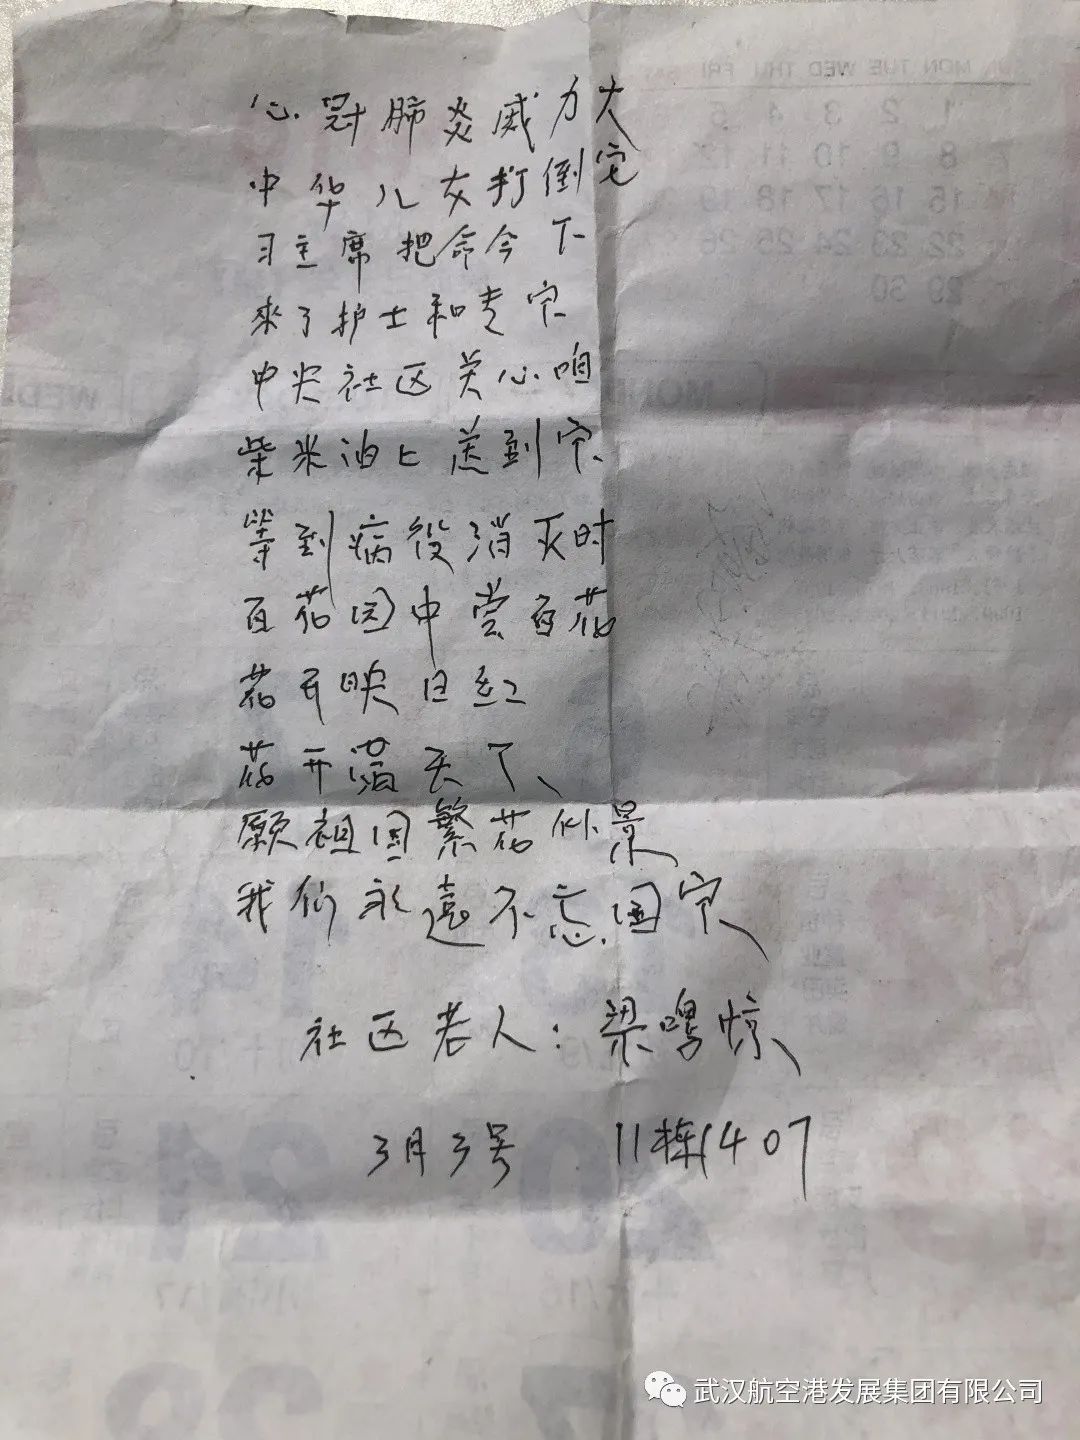 心冠肺炎威力大
中华儿女打倒它
习主席把命令下
来了护士和专家
中央社区关心咱
柴米油上送到家
等到病役消灭时
百花园中尝百花
花开映日红
花开满天下
愿祖国繁花似景
我们永遠不忘国家
社区老人：梁鸣惊
3月3号 11栋1407
SUN MON TUE WED THU FRI SAT
1 2 3 4 5
8 9 10 11 12
15 16 17 18 19
22 23 24 25 26
29 30
MON
WED
14
20
21
武汉航空港发展集团有限公司